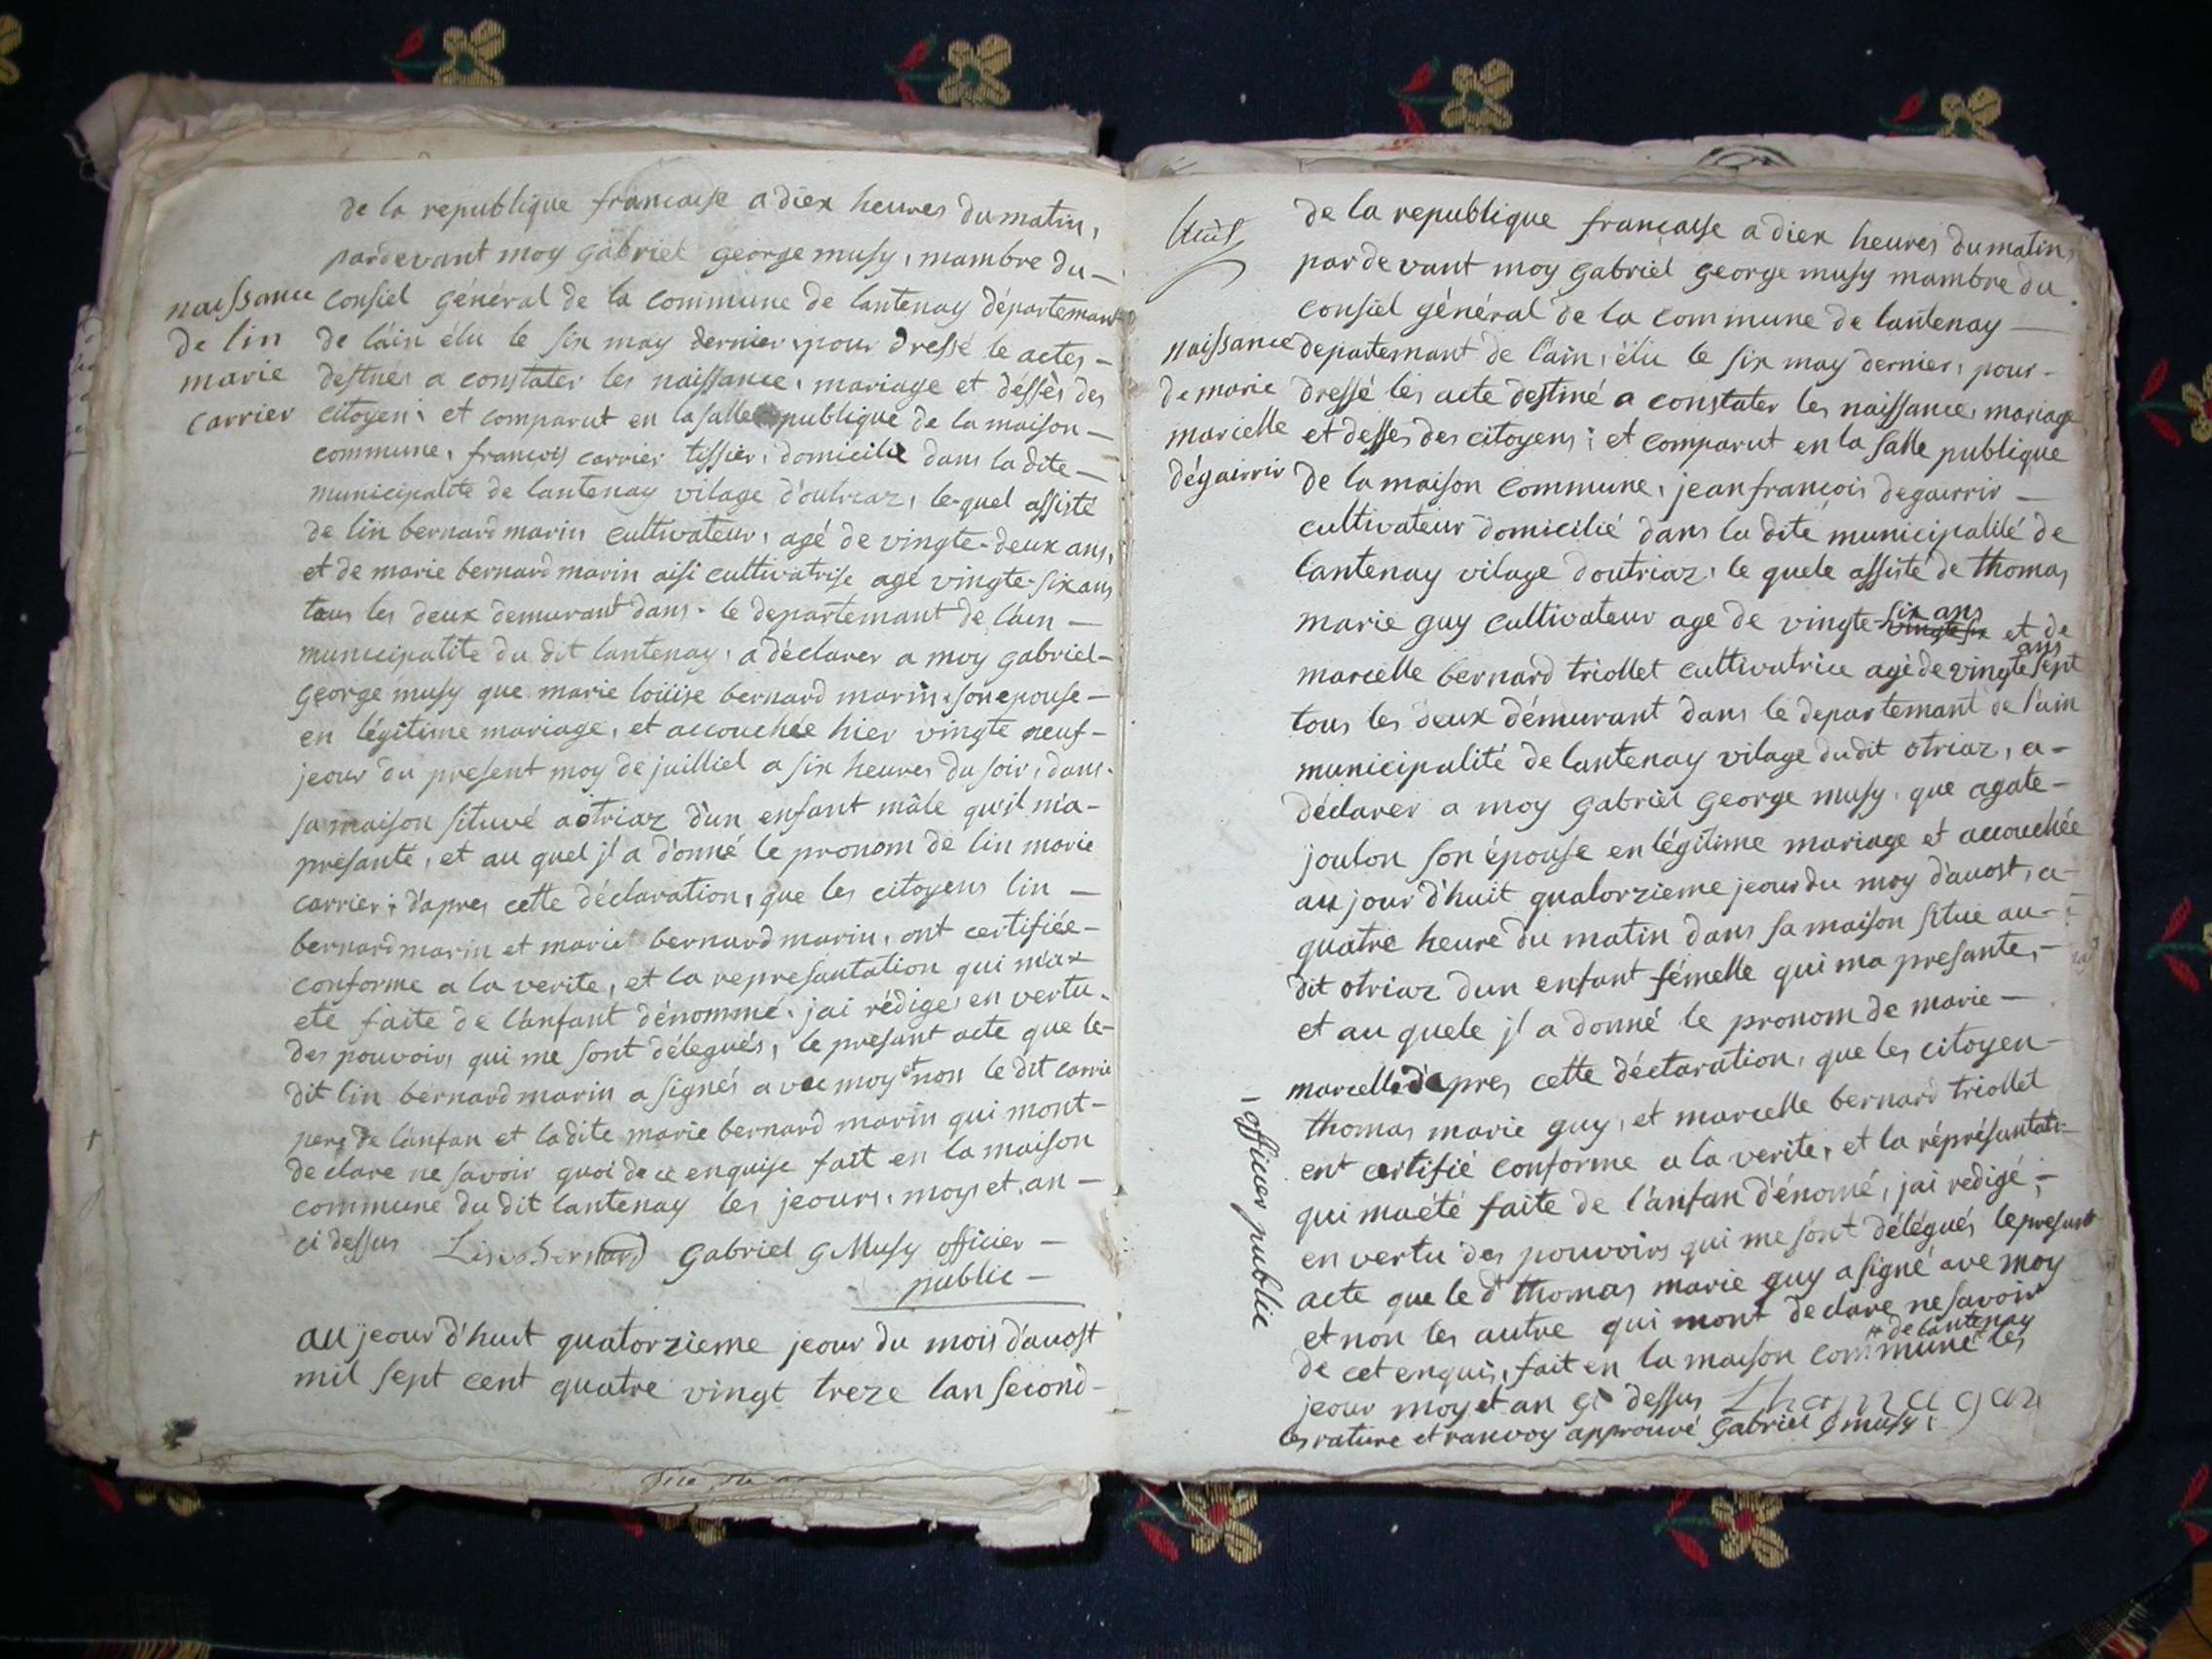 de la republique francaise a diex heures du matin,
pardevant moy gabriel george musy, mambre du-
naissance
de lin
marie
carrier
consiel général de la commune de lantenay départemant
de láin élu le six may dernier, pour dressé le actes-
destnés a constater les naissance, mariage et déssès des
citoyen; et comparut en la salle publique de la maison-
commune, francois carrier tissier, domicilié dans la dite-
municipalite de lantenay vilage d'outriaz, le-quel assisté
de lin bernard marin cultivateur, agé de vingte-deux ans,
et de marie bernard marin aisi cultivatrise agé vingte-six ans
tous les deux demurant dans. le departemant de láin-
municipalite du dit lantenay, a déclarer a moy gabriel-
george musy que marie loiiise bernard marin son epouse-
en légitime mariage, et accouchée hier vingte neuf-
jeour du present moy de juilliel a six heures du soir, dans-
sa maison situvé aotriaz d'un enfant mâle qu'il m'a-
presante, et au quel jl a d'onné le pronom de lin marie
carrier; d'apres cette déclaration, que les citoyens lin-
bernard marin et marie bernard marin, ont certifiée-
conforme a la verite, et la represantation qui m'ax
eté faite de l'anfant dénommé, jai rédiger en vertu-
des pouvoirs qui me sont délegués, le presant acte que le-
dit lin bernard marin a signés a vec moy et non le dit carrie
pere de l'anfan et ladite marie bernard marin qui mont-
declare ne savoir quoi de ce enquise fait en la maison
commune du dit lantenay les jeours, moys et an-
ci dessus Lin Bernard Gabriel G Musy officier-
public-
au jeour d'huit quatorzieme jeour du mois d'auost
mil sept cent quatre vingt treze lan second-
huit
de la republique francaise a diex heures du matin,
par de vant moy gabriel george musy mambre du
consiel général de la commune de lantenay-
naissance
de marie
marielle
dégairrir
departemant de l'ain, élu le six may dernier, pour-
dressé les acte destiné a constater les naissance, mariage
et desses des citoyens; et comparut en la salle publique
de la maison commune, jean francois degairrir-
cultivateur domicilié dans la dite municipalité de
lantenay vilage doutriaz, le quele assisté de thomas
marie guy cultivateur age de vingte six ans vingte six et de
marcelle bernard triollet cultivatrice agé de vingte sept ans
tous les deux démurant dans le departemant de l'ain
municipalité de lantenay vilage dudit otriaz, a-
déclarer a moy gabriel george musy, que agate-
joulon son épouse en légitime mariage et accouchée
au jour d'huit quatorzieme jeour du moy d'auost, a-
quatre heure du matin dans sa maison situe au-
dit otriaz dun enfant fémelle qui ma presante,-
et au quele jl a donné le pronom de marie-
marcelle d'apres cette déclaration, que les citoyen-
thomas marie guy, et marcelle bernard triollet
ent certifié conforme a la verite, et la réprésantati-
qui maété faite de l'anfan d'énomé, jai redigé,-
en vertu des pouvoirs qui me sont délégués le presant
acte que le dt thomas marie guy a signé ave moy
et non les autre qui mont declare ne savoir
de cet enquis, fait en la maison commune de lantenay les
jeour moy et an ci dessus
les rature et ranvoy approuvé Gabriel G musy,
- officier public